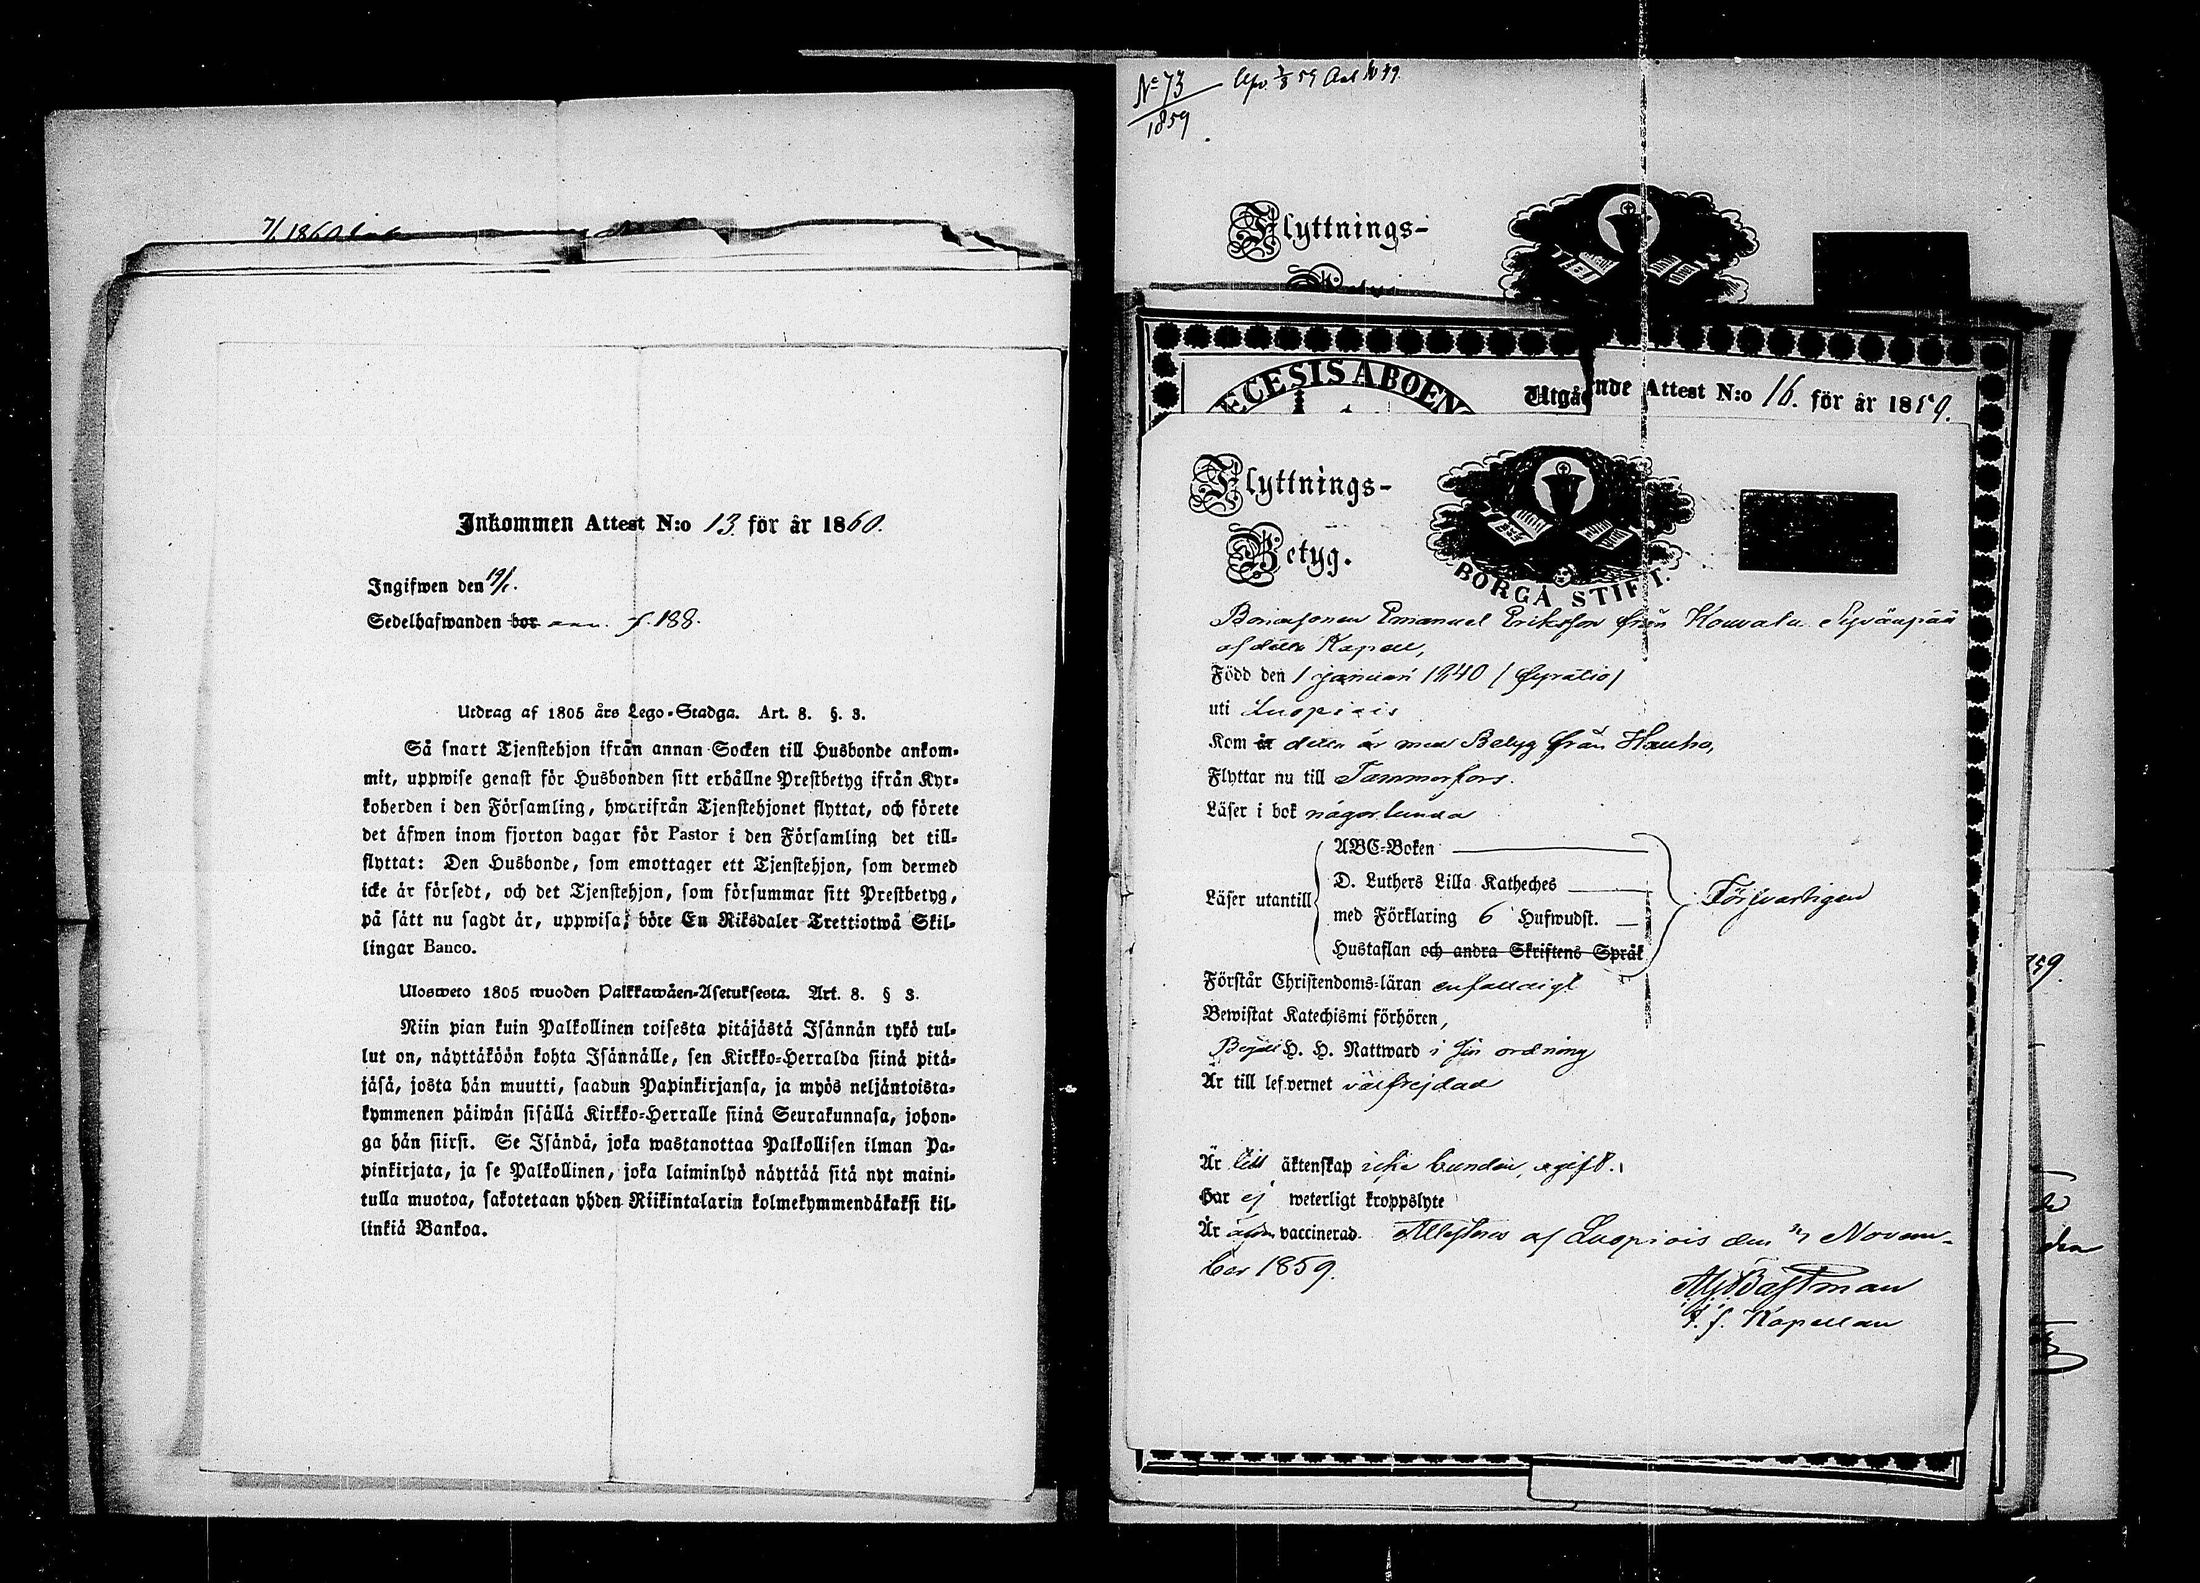 7/1 1860
Inkommen Attest N:o 13. för år 1860.
Ingifwen den 19/1.
Sedelhafwanden bor f. 188.
Utdrag af 1805 års Lego-Stadga. Art. 8. §. 3.
Så snart Tjenstehjon ifrån annan Socken till Husbonde ankom-
mit, uppwise genast för Husbonden sitt erhållne Prestbetyg ifrån Kyr-
koherden i den Församling, hwarifrån Tjenstehjonet flyttat, och förete
det äfwen inom fjorton dagar för Pastor i den Församling det till-
flyttat: Den Husbonde, som emottager ett Tjenstehjon, som dermed
icke är försedt, och det Tjenstehjon, som försummar sitt Prestbetyg,
på sätt nu sagdt är, uppwisa; böte En Riksdaler Trettiotwå Skil-
lingar Banco.
Ulosweto 1805 wuoden Palkkawäen-Asetuksesta. Art. 8. § 3.
Niin pian kuin Palkollinen toisesta pitäjästä Isännän tykö tul-
lut on, näyttäköön kohta Isännälle, sen Kirkko-Herralda siinä pitä-
jäsä, josta hän muutti, saadun Papinkirjansa, ja myös neljäntoista-
kymmenen päiwän sisällä Kirkko-Herralle siinä Seurakunnasa, johon-
ga hän siirsi. Se Isändä, joka wastanottaa Palkollisen ilman Pa-
pinkirjata, ja se Palkollinen, joka laiminlyö näyttää sitä nyt maini-
tulla muotoa, sakotetaan yhden Riikintalarin kolmekymmendäkaksi kil-
linkiä Bankoa.
No 73 / 1859
Flyttnings-
ECESIS ABOEN
Utgående Attest N:o 16. för år 1859.
Flyttnings-
Betyg.
BORGÅ STIFT.
Bondsonen Emanuel Eriksson från Kouvala Syvänpää
af detta Kapell,
Född den 1 januari 1840 / fyratio/
uti Luopiois
Kom it detta år med Betyg från Hauho,
Flyttar nu till Tammerfors.
Läser i bok någorlunda
Läser utantill
ABC-Boken
D. Luthers Lilla Katheches
med Förklaring 6 Hufwudst.
Hustaflan och andra Skriftens Språk
Försvarligen
Förstår Christendoms-läran enfaldigt
Bewistat Katechismi förhören,
Begått H. H. Nattward i sin ordning
Är till lefvernet välfrejdad
Är till äktenskap icke bunden, ogift.
Har ej weterligt kroppslyte
Är äfven vaccinerad. Attesteras af Luopiois den Novem-
ber 1859.
Bastman
t. f. Kapellan